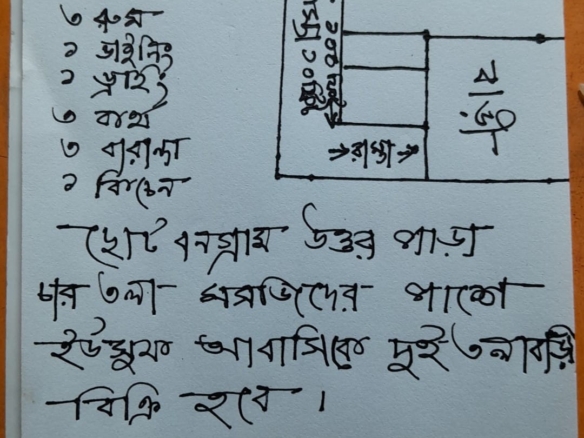 ৩ রুম
১ ডাইনিং
১ ড্রইং
৩ বাথ
৩ বারান্ডা
১ কিচেন
বাড়ী
রাস্তা
ছোট বনগ্রাম উত্তর পাড়া
চার তলা মসজিদের পাশে
ইউসুফ আবাসিকে দুই তলা বাড়ি
বিক্রি হবে।